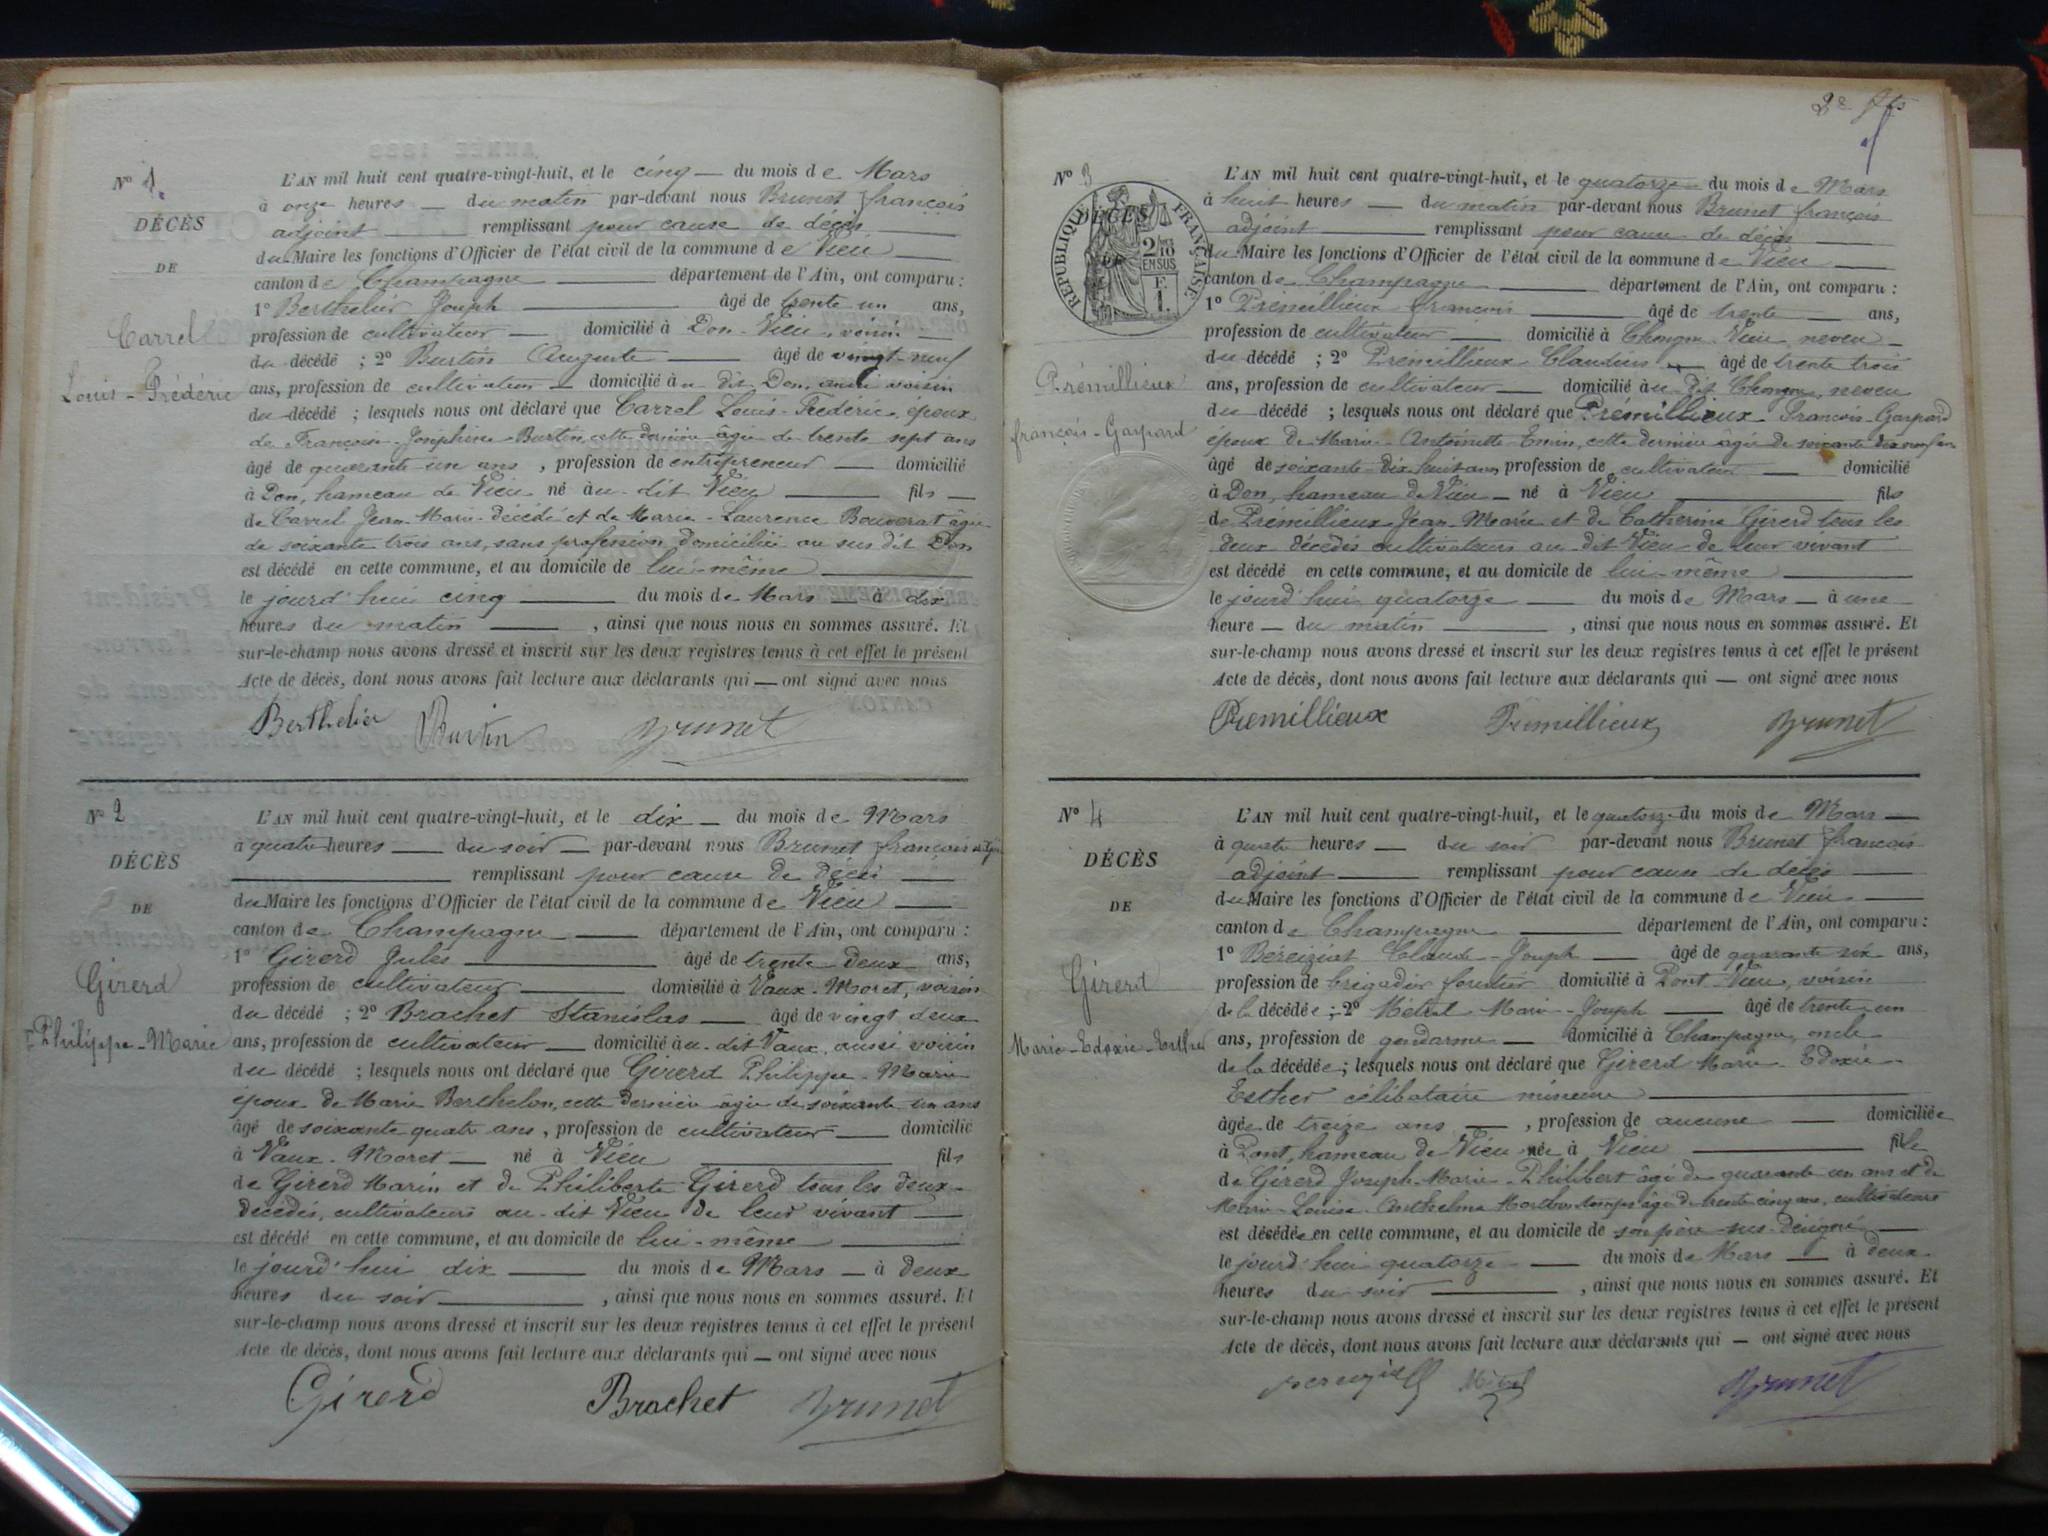 N° 1.
DÉCÈS
DE
Carrel
Louis-Frédéric
L'AN mil huit cent quatre-vingt-huit, et le cinq du mois de Mars
à onze heures du matin par-devant nous Brunet françois
adjoint remplissant pour cause de décès
du Maire les fonctions d'Officier de l'état civil de la commune de Vieu
canton de Champagne département de l'Ain, ont comparu :
1° Berthelier Joseph âgé de trente un ans,
profession de cultivateur domicilié à Don-Vieu, voisin
du décédé ; 2° Burtin Auguste âgé de vingt-neuf
ans, profession de cultivateur domicilié au dit Don, aussi voisin
du décédé ; lesquels nous ont déclaré que Carrel Louis-Frédéric, époux
de Françoise-Joséphine Burtin, cette dernière âgée de trente sept ans
âgé de quarante-un ans, profession de entrepreneur domicilié
à Don, hameau de Vieu né au-dit Vieu fils
de Carrel Jean-Marie décédé et de Marie-Laurence Bouverat âgée
de soixante trois ans, sans profession domiciliée au sus dit Don
est décédé en cette commune, et au domicile de lui-même
le jourd'hui cinq du mois de Mars à dix
heures du matin, ainsi que nous nous en sommes assuré. Et
sur-le-champ nous avons dressé et inscrit sur les deux registres tenus à cet effet le présent
Acte de décès, dont nous avons fait lecture aux déclarants qui ont signé avec nous
Berthelier Burtin Brunet
N° 2
DÉCÈS
DE
Girerd
Philippe-Marie
L'AN mil huit cent quatre-vingt-huit, et le dix du mois de Mars
à quatre heures du soir par-devant nous Brunet françois adjoint
remplissant pour cause de décès
du Maire les fonctions d'Officier de l'état civil de la commune de Vieu
canton de Champagne département de l'Ain, ont comparu :
1° Girerd Jules âgé de trente-deux ans,
profession de cultivateur domicilié à Vaux-Moret, voisin
du décédé ; 2° Brachet Stanislas âgé de vingt deux
ans, profession de cultivateur domicilié au-dit Vaux, aussi voisin
du décédé ; lesquels nous ont déclaré que Girerd Philippe-Marie
époux de Marie Berthelon, cette dernière âgée de soixante-un ans
âgé de soixante quatre ans, profession de cultivateur domicilié
à Vaux-Moret né à Vieu fils
de Girerd Marin et de Philiberte Girerd tous les deux
décédés, cultivateurs au-dit Vieu de leur vivant
est décédé en cette commune, et au domicile de lui-même
le jourd'hui dix du mois de Mars à deux
heures du soir, ainsi que nous nous en sommes assuré. Et
sur-le-champ nous avons dressé et inscrit sur les deux registres tenus à cet effet le présent
Acte de décès, dont nous avons fait lecture aux déclarants qui ont signé avec nous
Girerd Brachet Brunet
2e
N° 3
DÉCÈS
RÉPUBLIQUE FRANÇAISE
2/10
EN SUS
F.
1.
Prémillieux
françois-Gaspard
L'AN mil huit cent quatre-vingt-huit, et le quatorze du mois de Mars
à huit heures du matin par-devant nous Brunet françois
adjoint remplissant pour cause de décès
du Maire les fonctions d'Officier de l'état civil de la commune de Vieu
canton de Champagne département de l'Ain, ont comparu :
1° Prémillieux François âgé de trente ans,
profession de cultivateur domicilié à Chongne-Vieu neveu
du décédé ; 2° Prémillieux Claudius âgé de trente trois
ans, profession de cultivateur domicilié au dit Chongne, neveu
du décédé ; lesquels nous ont déclaré que Prémillieux François-Gaspard
époux de Marie-Antoinette Emin, cette dernière âgée de soixante dix neuf ans
âgé de soixante-dix huit ans profession de cultivateur domicilié
à Don, hameau de Vieu né à Vieu fils
de Prémillieux Jean-Marie et de Catherine Girerd tous les
deux décédés cultivateurs au-dit Vieu de leur vivant
est décédé en cette commune, et au domicile de lui-même
le jourd'hui quatorze du mois de Mars à une
heure du matin, ainsi que nous nous en sommes assuré. Et
sur-le-champ nous avons dressé et inscrit sur les deux registres tenus à cet effet le présent
Acte de décès, dont nous avons fait lecture aux déclarants qui ont signé avec nous
Premillieux Prémillieux Brunet
N° 4
DÉCÈS
DE
Girerd
Marie-Edoxie-Esther
L'AN mil huit cent quatre-vingt-huit, et le quatorze du mois de Mars
à quatre heures du soir par-devant nous Brunet françois
adjoint remplissant pour cause de décès
du Maire les fonctions d'Officier de l'état civil de la commune de Vieu
canton de Champagne département de l'Ain, ont comparu :
1° Béreiziat Claude-Joseph âgé de quarante six ans,
profession de brigadier forestier domicilié à Pont-Vieu, voisin
de la décédée ; 2° Métral Marie-Joseph âgé de trente-un
ans, profession de gendarme domicilié à Champagne, oncle
de la décédée ; lesquels nous ont déclaré que Girerd Marie-Edoxie
Esther célibataire mineure
âgée de treize ans, profession de aucune domiciliée
à Pont, hameau de Vieu née à Vieu fille
de Girerd Joseph-Marie-Philibert âgé de quarante-un ans et de
Marie-Louise-Anthelma âgée de trente cinq ans, cultivateurs
est décédée en cette commune, et au domicile de son père sus-désigné
le jourd'hui quatorze du mois de Mars à deux
heures du soir, ainsi que nous nous en sommes assuré. Et
sur-le-champ nous avons dressé et inscrit sur les deux registres tenus à cet effet le présent
Acte de décès, dont nous avons fait lecture aux déclarants qui ont signé avec nous
Métral Brunet